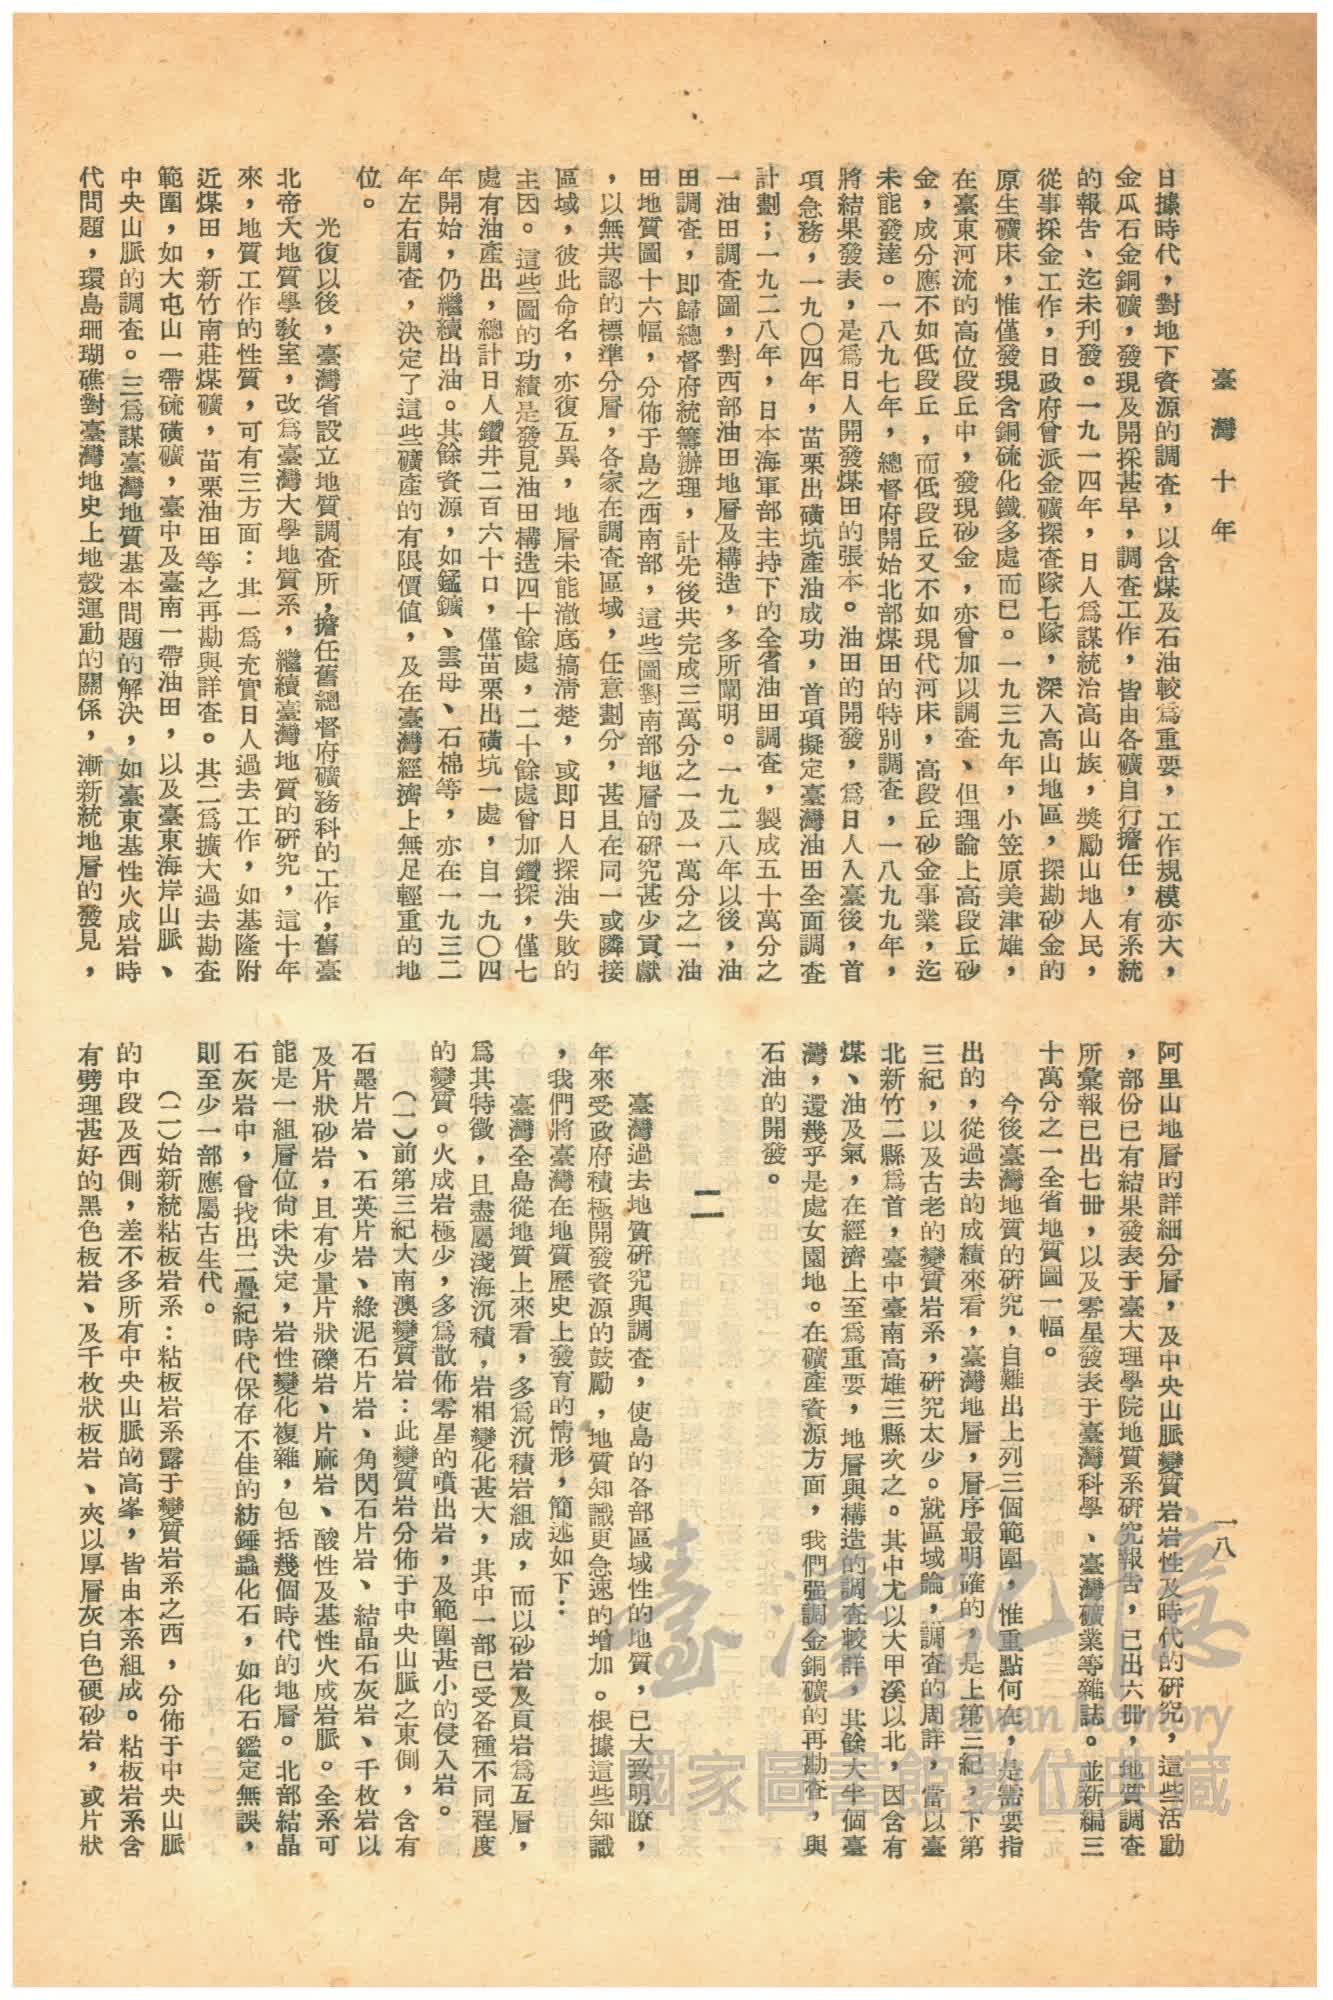 臺灣十年
一八
日據時代，對地下資源的調查，以含煤及石油較爲重要，工作規模亦大，
金瓜石金銅礦，發現及開採甚早，調查工作，皆由各礦自行擔任，有系統
的報告、迄未刊發。一九一四年，日人爲謀統治高山族，獎勵山地人民，
從事採金工作，日政府曾派金礦探查隊七隊，深入高山地區，探勘砂金的
原生礦床，惟僅發現含銅硫化鐵多處而已。一九三九年，小笠原美津雄，
在臺東河流的高位段丘中，發現砂金，亦曾加以調查、但理論上高段丘砂
金，成分應不如低段丘，而低段丘又不如現代河床，高段丘砂金事業，迄
未能發達。一八九七年，總督府開始北部煤田的特別調查，一八九九年，
將結果發表，是爲日人開發煤田的張本。油田的開發，爲日人入臺後，首
項急務，一九〇四年，苗栗出磺坑產油成功，首項擬定臺灣油田全面調查
計劃；一九二八年，日本海軍部主持下的全省油田調查，製成五十萬分之
一油田調查圖，對西部油田地層及構造，多所闡明。一九二八年以後，油
田調查，即歸總督府統籌辦理，計先後共完成三萬分之一及一萬分之一油
田地質圖十六幅，分佈于島之西南部，這些圖對南部地層的研究甚少貢獻
，以無共認的標準分層，各家在調查區域，任意劃分，甚且在同一或隣接
區域，彼此命名，亦復互異，地層未能澈底搞清楚，或即日人探油失敗的
主因。這些圖的功績是發見油田構造四十餘處，二十餘處曾加鑽探，僅七
處有油產出，總計日人鑽井二百六十口，僅苗栗出磺坑一處，自一九〇四
年開始，仍繼續出油。其餘資源，如錳鑛、雲母、石棉等，亦在一九三二
年左右調查，決定了這些礦產的有限價值，及在臺灣經濟上無足輕重的地
位。
光復以後，臺灣省設立地質調查所，擔任舊總督府礦務科的工作，舊臺
北帝大地質學教室，改爲臺灣大學地質系，繼續臺灣地質的研究，這十年
來，地質工作的性質，可有三方面：其一爲充實日人過去工作，如基隆附
近煤田，新竹南莊煤礦，苗栗油田等之再勘與詳查。其二爲擴大過去勘查
範圍，如大屯山一帶硫磺礦，臺中及臺南一帶油田，以及臺東海岸山脈、
中央山脈的調查。三爲謀臺灣地質基本問題的解決，如臺東基性火成岩時
代問題，環島珊瑚礁對臺灣地史上地殼運動的關係，漸新統地層的發見，
阿里山地層的詳細分層，及中央山脈變質岩岩性及時代的研究，這些活動
，部份已有結果發表于臺大理學院地質系研究報告，已出六册，地質調查
所彙報已出七册，以及零星發表于臺灣科學、臺灣礦業等雜誌。並新編三
十萬分之一全省地質圖一幅。
今後臺灣地質的研究，自難出上列三個範圍，惟重點何在，是需要指
出的，從過去的成績來看，臺灣地層，層序最明確的，是上第三紀，下第
三紀，以及古老的變質岩系，研究太少。就區域論，調查的周詳，當以臺
北新竹二縣爲首，臺中臺南高雄三縣次之。其中尤以大甲溪以北，因含有
煤、油及氣，在經濟上至爲重要，地層與構造的調查較詳，其餘大半個臺
灣，還幾乎是處女園地。在礦產資源方面，我們强調金銅礦的再勘查，與
石油的開發。
二
臺灣過去地質研究與調查，使島的各部區域性的地質，已大致明瞭，
年來受政府積極開發資源的鼓勵，地質知識更急速的增加。根據這些知識
，我們將臺灣在地質歷史上發育的情形，簡述如下：
臺灣全島從地質上來看，多爲沉積岩組成，而以砂岩及頁岩爲互層，
爲其特徵，且盡屬淺海沉積，岩相變化甚大，其中一部已受各種不同程度
的變質。火成岩極少，多爲散佈零星的噴出岩，及範圍甚小的侵入岩。
（一）前第三紀大南澳變質岩：此變質岩分佈于中央山脈之東側，含有
石墨片岩、石英片岩、綠泥石片岩、角閃石片岩、結晶石灰岩、千枚岩以
及片狀砂岩，且有少量片狀礫岩、片麻岩、酸性及基性火成岩脈。全系可
能是一組層位尙未決定，岩性變化複雜，包括幾個時代的地層。北部結晶
石灰岩中，曾找出二疊紀時代保存不佳的紡錘蟲化石，如化石鑑定無誤，
則至少一部應屬古生代。
（二）始新統粘板岩系：粘板岩系露于變質岩系之西，分佈于中央山脈
的中段及西側，差不多所有中央山脈的高峯，皆由本系組成。粘板岩系含
有劈理甚好的黑色板岩、及千枚狀板岩、夾以厚層灰白色硬砂岩，或片狀
臺灣記憶
Taiwan Memory
國家圖書館數位典藏